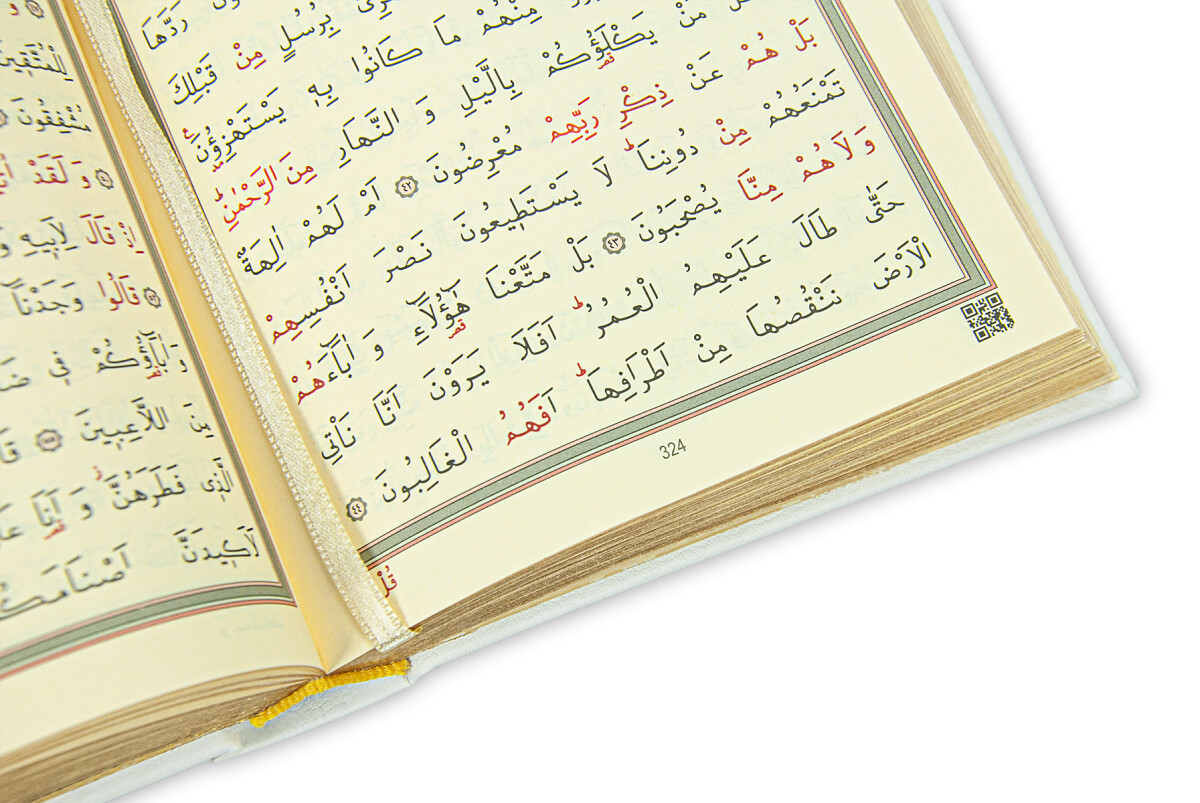 رَدَّهَا
بِرُسُلٍ مِنْ قَبْلِكَ
مِنْهُمْ مَا كَانُوا بِهٖ يَسْتَهْزِؤُنَ
مَنْ يَكْلَؤُكُمْ بِالَّيْلِ وَ النَّهَارِ مِنَ الرَّحْمٰنِ
بَلْ هُمْ عَنْ ذِكْرِ رَبِّهِمْ مُعْرِضُونَ ٤٢ اَمْ لَهُمْ اٰلِهَةٌ
تَمْنَعُهُمْ مِنْ دُونِنَا لَا يَسْتَطٖيعُونَ نَصْرَ اَنْفُسِهِمْ
وَ لَا هُمْ مِنَّا يُصْحَبُونَ ٤٣ بَلْ مَتَّعْنَا هٰٓؤُلَٓاءِ وَ اٰبَٓاءَهُمْ
حَتّٰى طَالَ عَلَيْهِمُ الْعُمُرُ اَفَلَا يَرَوْنَ اَنَّا نَاْتِي
الْاَرْضَ نَنْقُصُهَا مِنْ اَطْرَافِهَا اَفَهُمُ الْغَالِبُونَ ٤٤
324
قُلْ
لِلْمُتَّقٖينَ
مُشْفِقُونَ
وَ لَقَدْ
اِذْ قَالَ لِاَبٖيهِ وَ
قَالُوا وَجَدْنَٓا
وَ اٰبَٓاؤُكُمْ فٖي
مِنَ اللَّاعِبٖينَ
الَّذٖي فَطَرَهُنَّ وَ اَنَا
لَاَكٖيدَنَّ